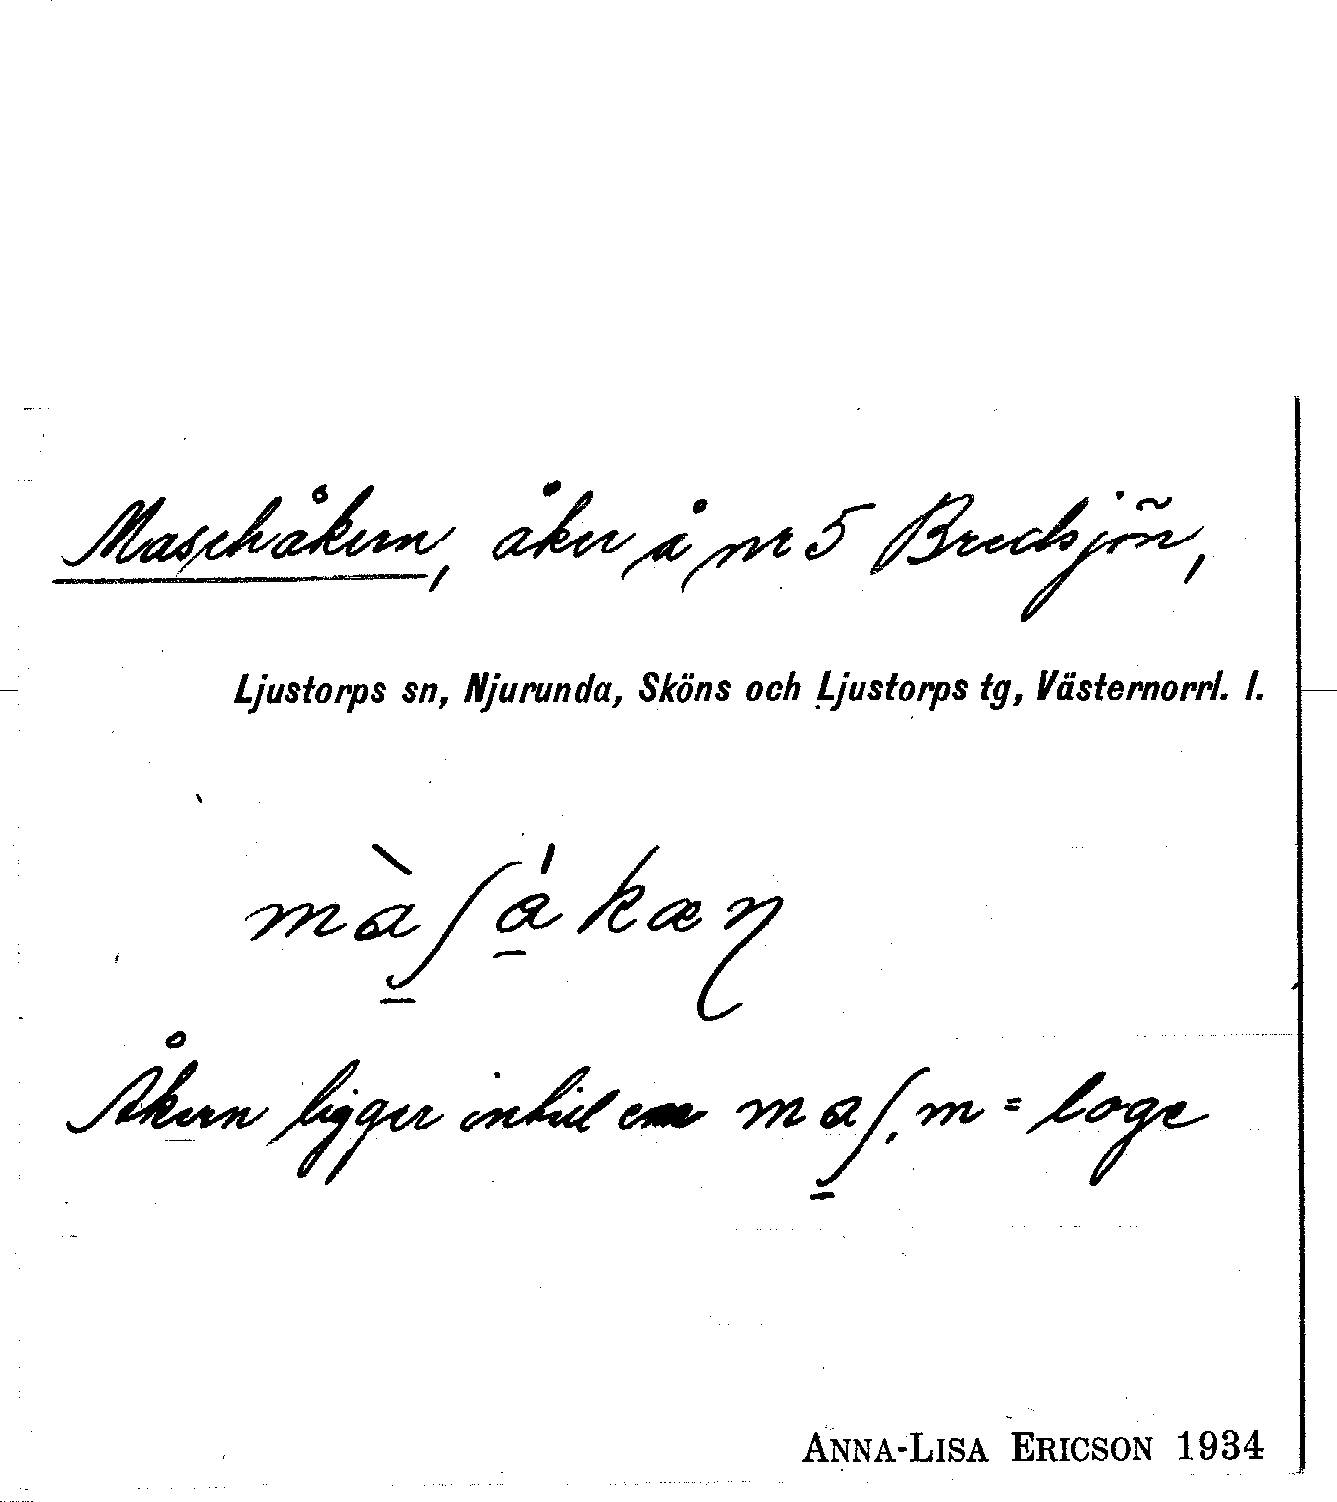 Maschåkern, åker å nr 5 Bredsjön,
Ljustorps sn, Njurunda, Sköns och Ljustorps tg, Västernorrl. l.
màʃákæn
Åkern ligger intill en maʃ, m = loge
ANNA-LISA ERICSON 1934